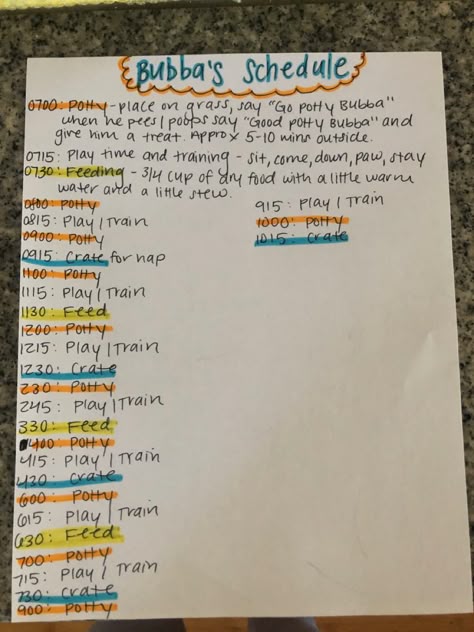 Bubba's Schedule
0700: Potty - place on grass, say "Go potty Bubba"
when he pees/poops say "Good potty Bubba" and
give him a treat. Approx 5-10 mins outside.
0715: Play time and training - sit, come, down, paw, stay
0730: Feeding - 3/4 cup of dry food with a little warm
water and a little stew.
0800: Potty
0815: Play/Train
0900: Potty
0915: Crate for nap
1100: Potty
1115: Play/Train
1130: Feed
1200: Potty
1215: Play/Train
1230: Crate
230: Potty
245: Play/Train
330: Feed
400: Potty
415: Play/Train
430: Crate
600: Potty
615: Play/Train
630: Feed
700: Potty
715: Play/Train
730: Crate
900: Potty
915: Play/Train
1000: Potty
1015: Crate